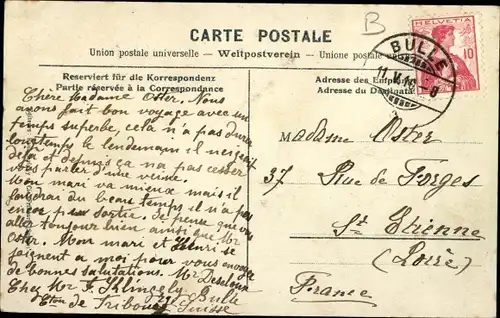 B
CARTE POSTALE
HELVETIA
10
Union postale universelle — Weltpostverein — Unione postale
BULLE
11. V. 10.
Reserviert für die Korrespondenz
Partie réservée à la Correspondance
Adresse des Empf
Adresse du Destinata
Chère Madame Oster. Nous
avons fait bon voyage avec un
temps superbe, cela n'a pas durer
longtemps le lendemain il neigeait
déja et depuis ça na pas cesser
vous parler d'une veine.
Mon mari va mieux mais il
faudrai du beau temps il n'a pas
encor pu sortir. Je pense que vous
aller toujour bien ainsi que Mr
Oster. Mon mari et Henri se
joignent a moi pour vous envoyé
de bonnes salutations. Desaloux
Chez Mr F. Klingely Bulle
Cton de Fribourg Suisse
Madame Oster
37 Rue de Forges
St Etienne
(Loire)
France